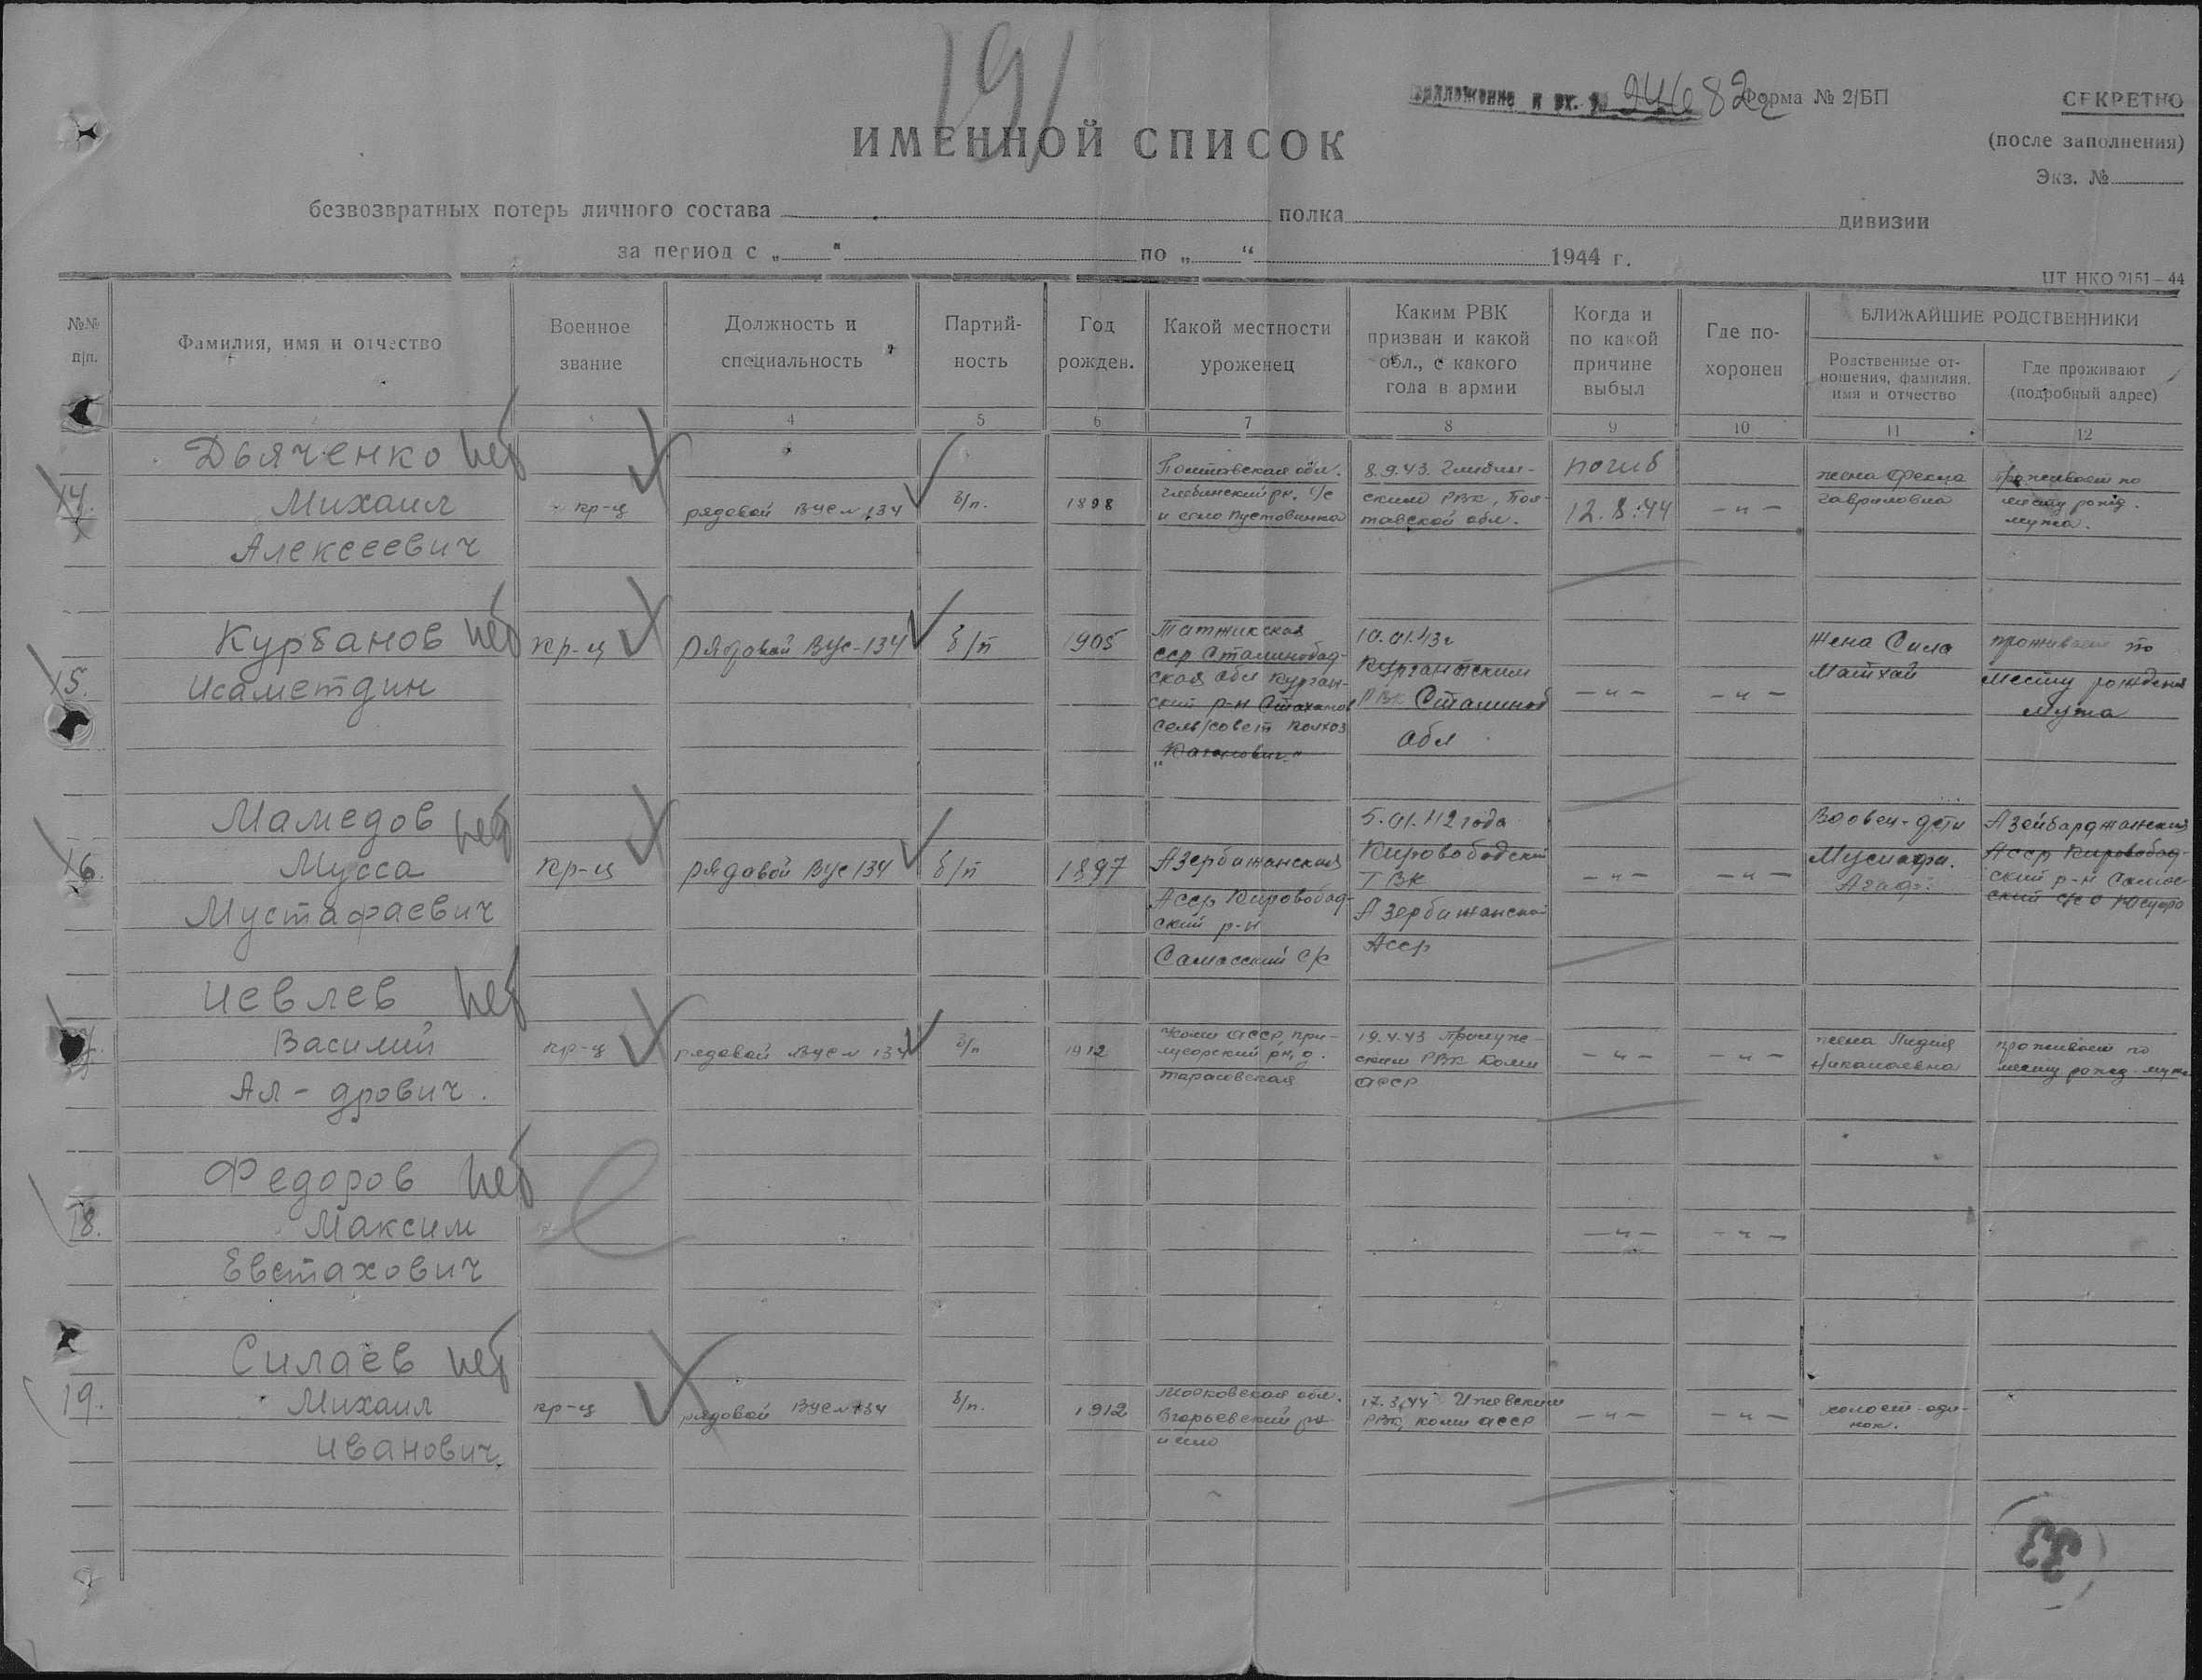 191
Приложение к вх. № 24682с Форма № 2/БП
СЕКРЕТНО
(после заполнения)
Экз. №
ИМЕННОЙ СПИСОК
безвозвратных потерь личного состава полка дивизии
за период с „ " по „ “ 1944 г.
ЦТ НКО 2151—44
№№ п/п.
Фамилия, имя и отчество
Военное звание
Должность и специальность
Партий-
ность
Год рожден.
Какой местности уроженец
Каким РВК
призван и какой
обл., с какого
года в армии
Когда и
по какой
причине
выбыл
Где по-
хоронен
БЛИЖАЙШИЕ РОДСТВЕННИКИ
Родственные от-
ношения, фамилия,
имя и отчество
Где проживают
(подробный адрес)
4 5 6 7 8 9 10 11 12
14.
Дьяченко
Михаил
Алексеевич
кр-ц
рядовой ВУС № 134
б/п.
1898
Полтавская обл.
Глобинский рн. с/с
и село Пустовинка
8.9.43. Глобин-
ским РВК, Пол-
тавской обл.
погиб
12.8.44
— „ —
жена
Гавриловна
Проживает по
месту рожд.
мужа.
15.
Курбанов
Исаметдин
кр-ц
Рядовой ВУС-134
б/п
1905
Татжикская
сср Сталинобад-
ская обл Курган-
ский р-н Стаханов
сель/совет колхоз
„Каганович"
10.01.43г
Кургантским
РВК Сталиноб
обл
— „ —
— „ —
Жена Сила
Матхай
проживает по
месту рождения
мужа
16.
Мамедов
Мусса
Мустафаевич
кр-ц
Рядовой ВУС 134
б/п
1897
Азербижанская
Асср Кировобад-
ский р-н
Самосский с/с
5.01.42 года
Кировободский
ТВК
Азербижанской
Асср
— „ —
— „ —
Вдовец-дети
Азейбарджанский
Асср Кировобад-
ский р-н
17.
Иевлев
Василий
Ал-дрович.
кр-ц
рядовой ВУС № 134
б/п
1912
Коми АССР, При-
лузский рн, д.
Тарасовская
19.4.43 Прилуз-
ским РВК Коми
АССР
— „ —
— „ —
жена Лидия
Николаевна
проживает по
месту рожд. мужа
18.
Федоров
Максим
Евстахович
— „ —
— „ —
19.
Силаев
Михаил
Иванович
кр-ц
рядовой ВУС № 134
б/п.
1912
Московская обл.
Егорьевский рн
и село
17.3.44 Ижевским
РВК, Коми АССР
— „ —
— „ —
холост-оди-
нок.